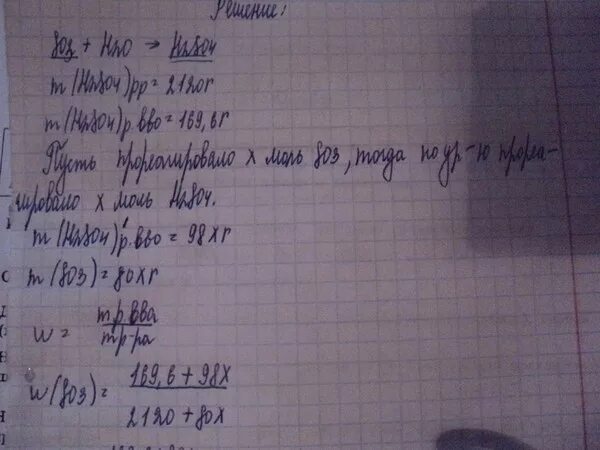 Решение:
SO3 + H2O → H2SO4
m (H2SO4) рр = 2120г
m (H2SO4) р.вво = 169,6г
Пусть прореагировало x моль SO3, тогда по ур-ю прореа-
гировало x моль H2SO4.
m (H2SO4) р.вво = 98xг
m (SO3) = 80xг
w = m р.вва / m р-ра
w (SO3) = 169,6 + 98x / 2120 + 80x